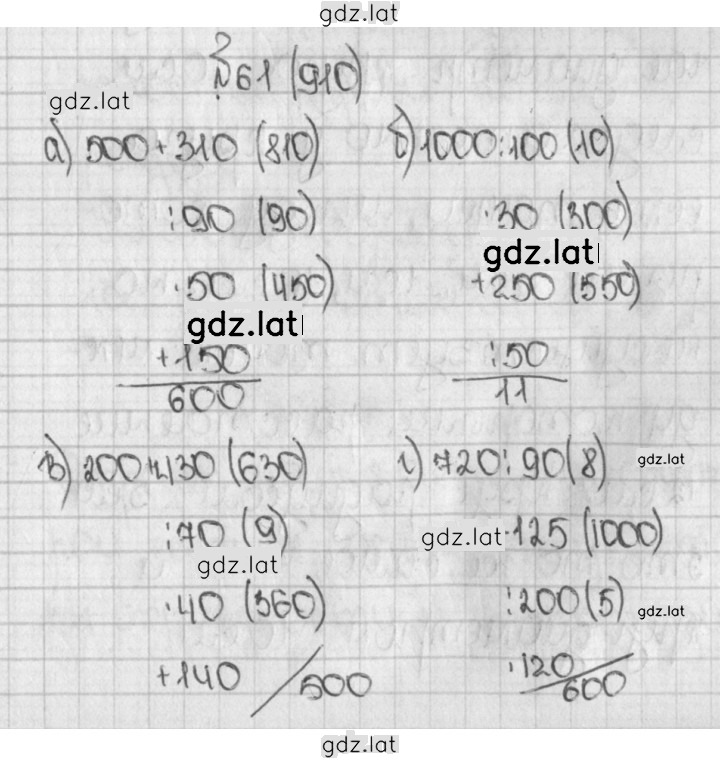 gdz.lat
№61 (910)
gdz.lat
а) 500+310 (810)
:90 (90)
·50 (450)
gdz.lat
+150
600
б) 1000:100 (10)
·30 (300)
gdz.lat
+250 (550)
:50
11
в) 200+430 (630)
:70 (9)
gdz.lat
·40 (360)
+140 / 500
г) 720:90 (8)
gdz.lat
gdz.lat ·125 (1000)
:200 (5)
gdz.lat
·120
600
gdz.lat